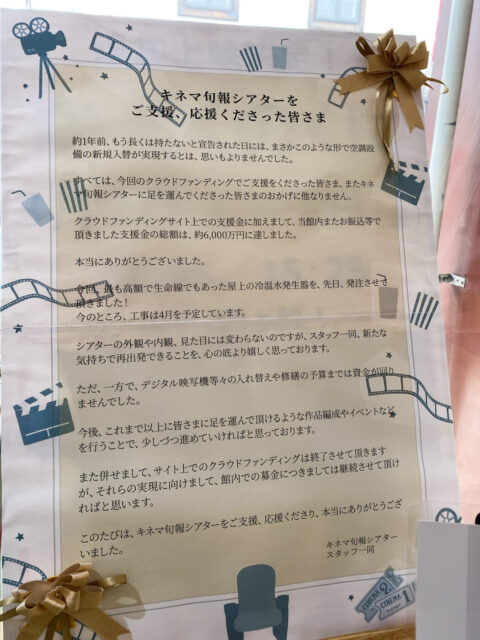 キネマ旬報シアターを
ご支援、応援くださった皆さま
約1年前、もう長くは持たないと宣告された日には、まさかこのような形で空調設
備の新規入替が実現するとは、思いもよりませんでした。
すべては、今回のクラウドファンディングでご支援をくださった皆さま、またキネ
マ旬報シアターに足を運んでくださった皆さまのおかげに他なりません。
クラウドファンディングサイト上での支援金に加えまして、当館内またお振込等で
頂きました支援金の総額は、約6,000万円に達しました。
本当にありがとうございました。
今回、最も高額で生命線でもあった屋上の冷温水発生器を、先日、発注させて
頂きました！
今のところ、工事は4月を予定しています。
シアターの外観や内観、見た目には変わらないのですが、スタッフ一同、新たな
気持ちで再出発できることを、心の底より嬉しく思っております。
ただ、一方で、デジタル映写機等々の入れ替えや修繕の予算までは資金が回り
ませんでした。
今後、これまで以上に皆さまに足を運んで頂けるような作品編成やイベントなど
を行うことで、少しづつ進めていければと思っております。
また併せまして、サイト上でのクラウドファンディングは終了させて頂きます
が、それらの実現に向けまして、館内での募金につきましては継続させて頂け
ればと思います。
このたびは、キネマ旬報シアターをご支援、応援くださり、本当にありがとうござ
いました。
キネマ旬報シアター
スタッフ一同
CINEMA 2
CINEMA 1